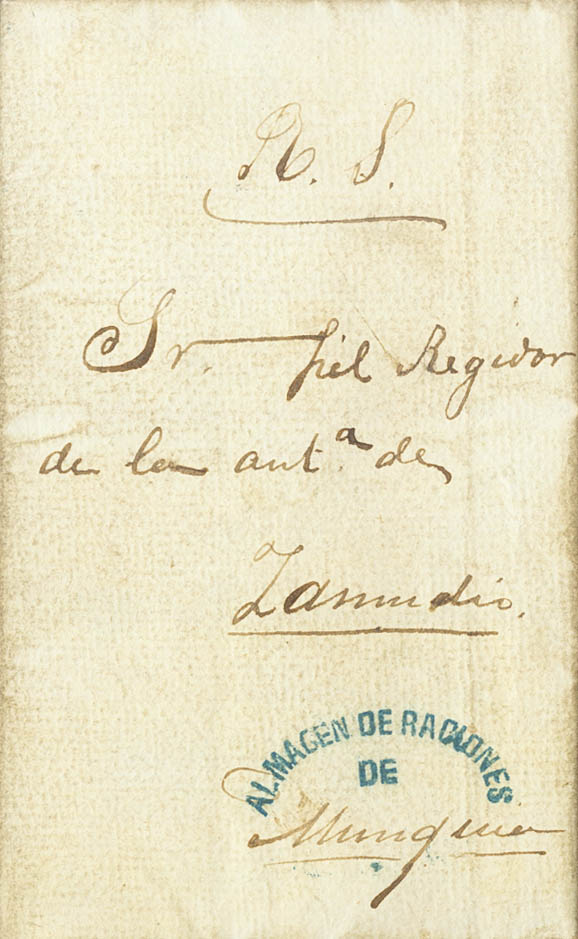 R. S.
Sr. fiel Regidor
de la ant.ª de
Zamudio.
ALMAGEN DE RACIONES
DE
Munguia